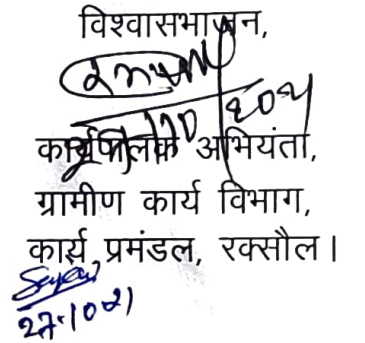 विश्वासभाजन,
कार्यपालक अभियंता,
ग्रामीण कार्य विभाग,
कार्य प्रमंडल, रक्सौल।
27.10.21